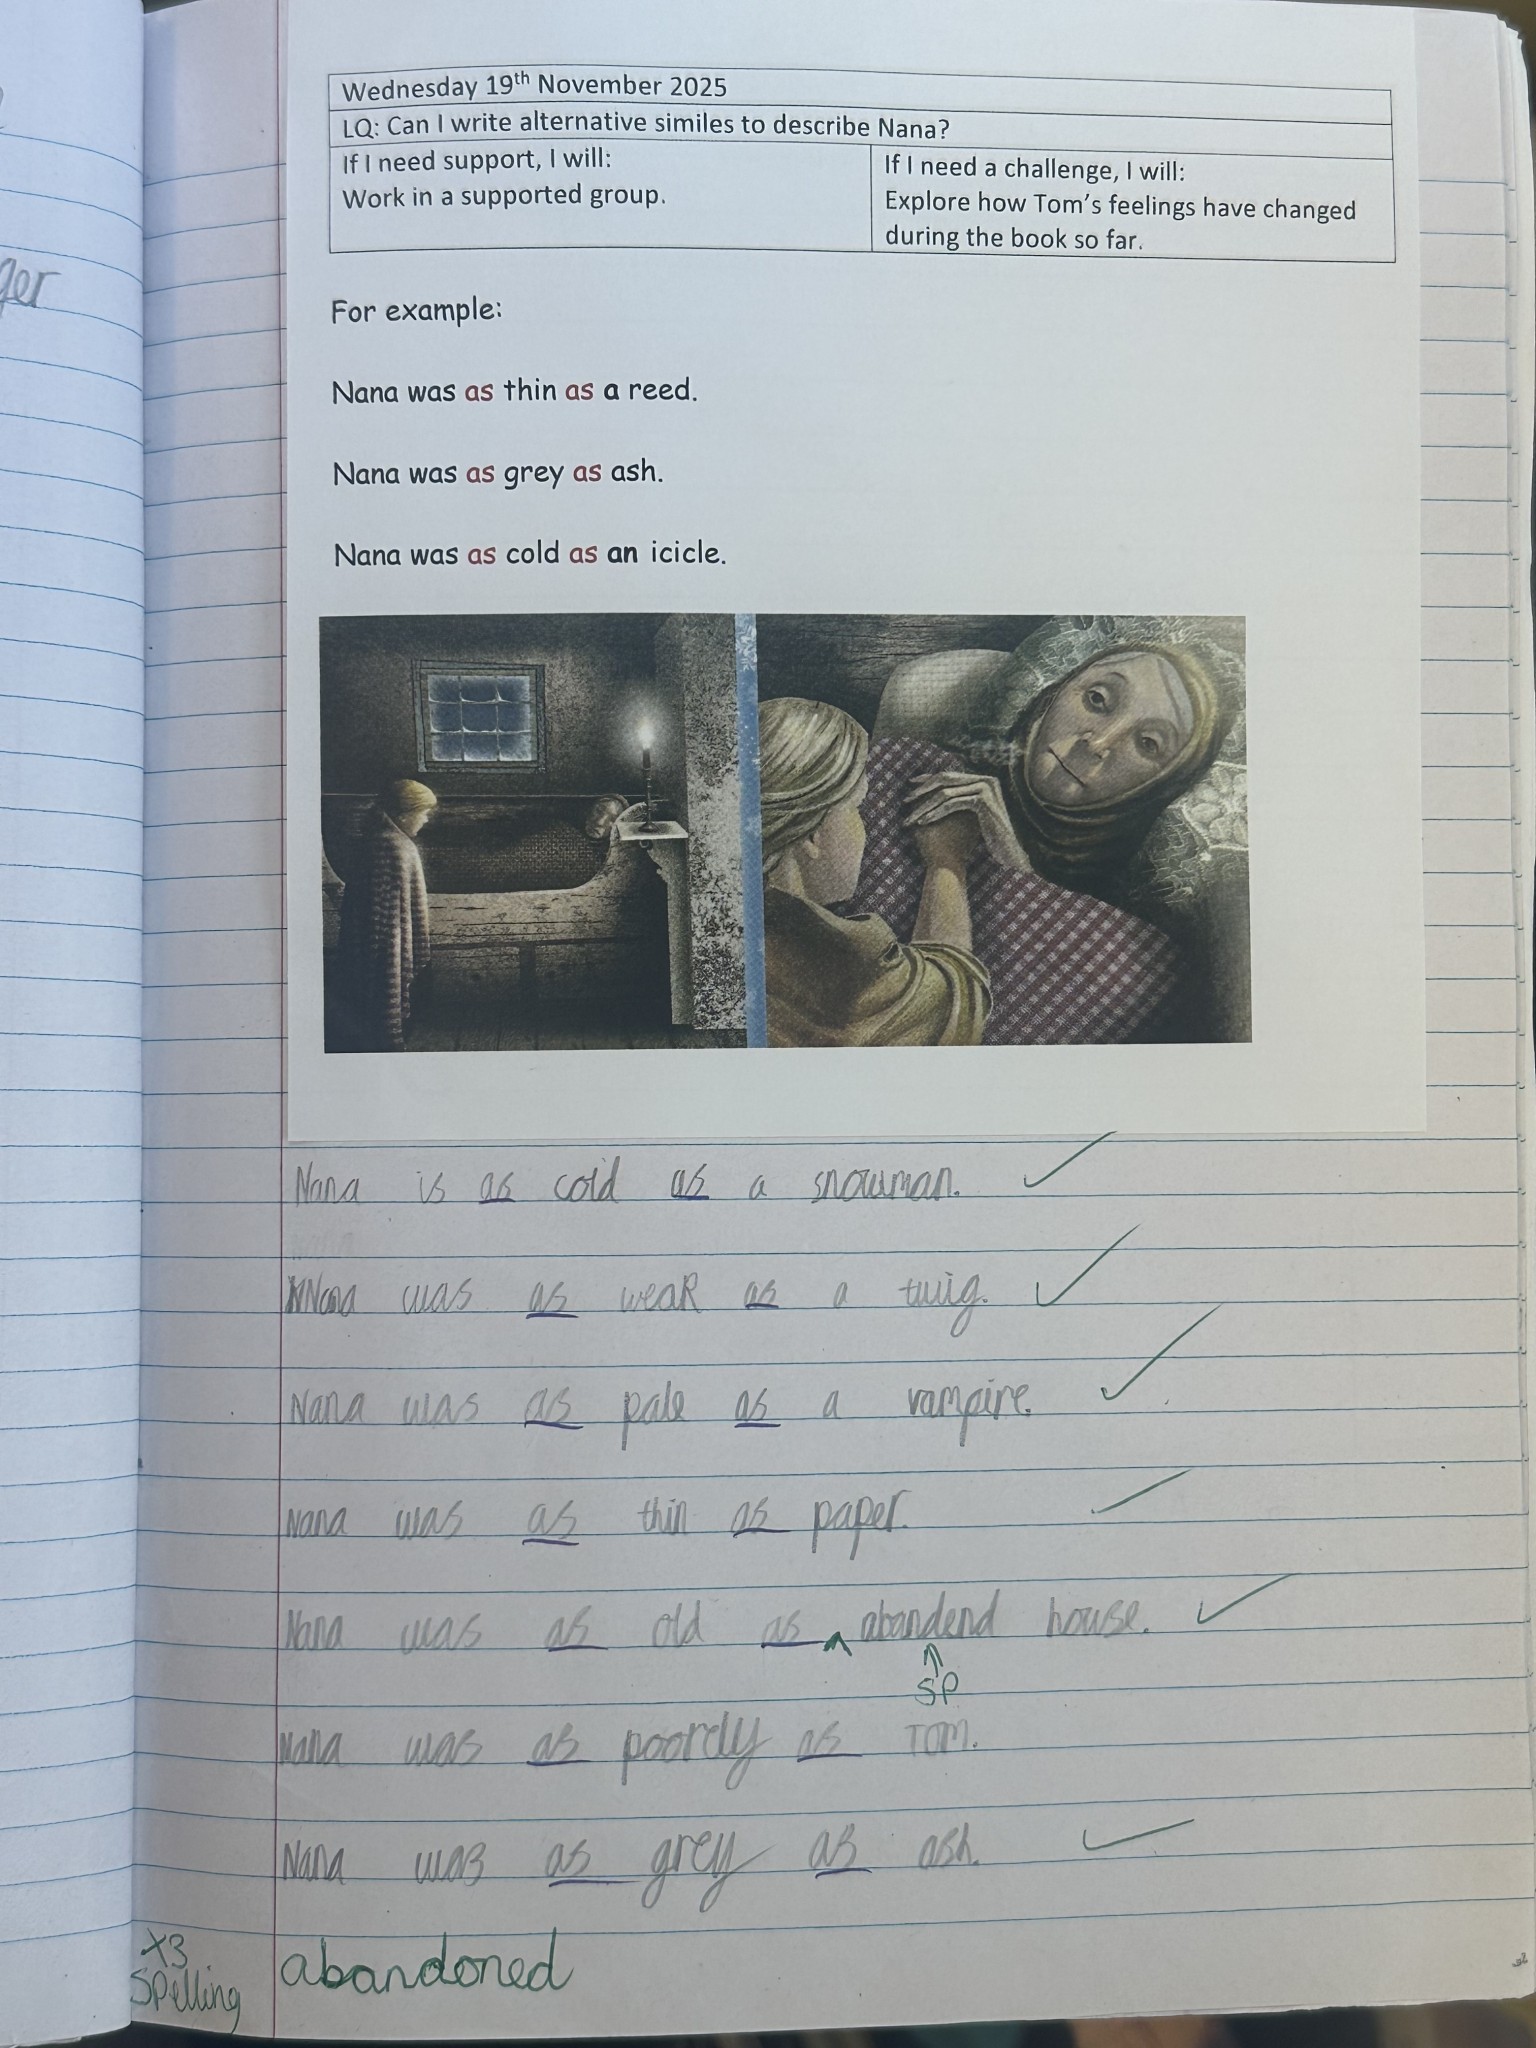 Wednesday 19th November 2025
LQ: Can I write alternative similes to describe Nana?
If I need support, I will:
Work in a supported group.
If I need a challenge, I will:
Explore how Tom's feelings have changed
during the book so far.
ger
For example:
Nana was as thin as a reed.
Nana was as grey as ash.
Nana was as cold as an icicle.
Nana is as cold as a snowman.
Nana was as weak as a twig.
Nana was as pale as a vampire.
Nana was as thin as paper.
Nana was as old as abandend house.
SP
Nana was as poordly as Tom.
Nana was as grey as ash.
x3
Spelling
abandoned